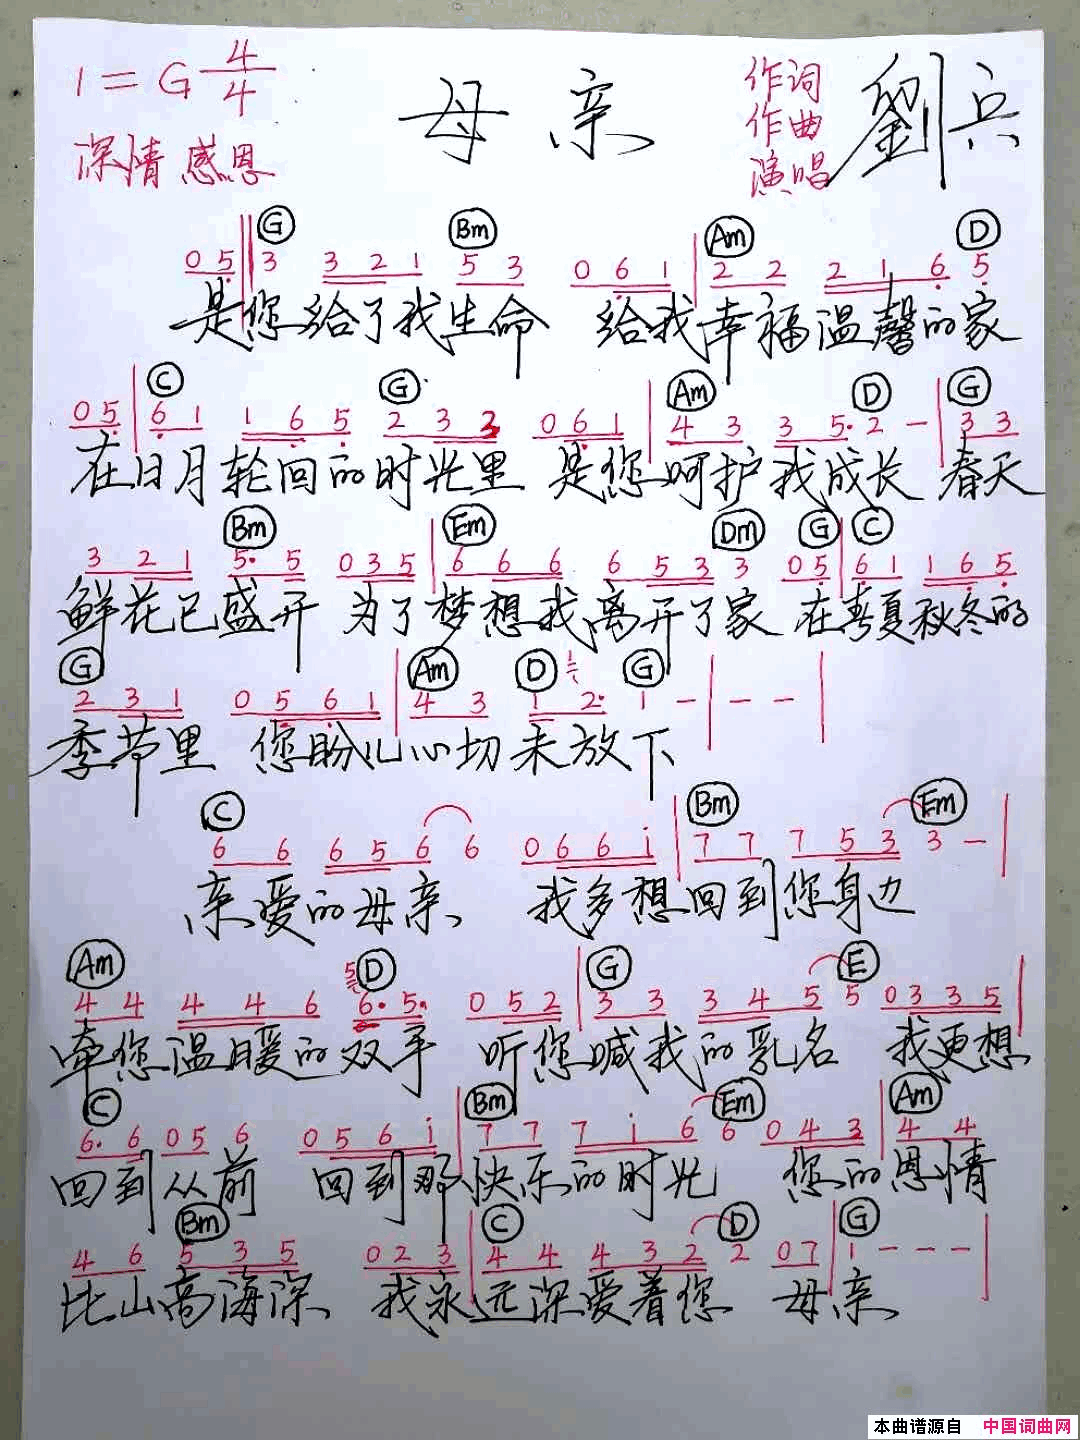 1=G 4/4 母亲 作词 作曲 演唱 劉兵
深情 感恩
G Bm Am D
0 5 3 3 2 1 5 3 0 6 1 2 2 2 1 6 5
是您给了我生命 给我幸福温馨的家
C G Am D G
0 5 6 1 1 6 5 2 3 3 0 6 1 4 3 3 5· 2 - 3 3
在日月轮回的时光里 是您呵护我成长 春天
Bm Em Dm G C
3 2 1 5· 5 0 3 5 6 6 6 6 5 3 3 0 5 6 1 1 6 5
鲜花已盛开 为了梦想我离开了家 在春夏秋冬的
G Am D 1 G
2 3 1 0 5 6 1 4 3 1 2· 1 - - -
季节里 您盼儿心切未放下
C Bm Em
6 6 6 5 6 6 0 6 6 i 7 7 7 5 3 3 -
亲爱的母亲 我多想回到您身边
Am 5 D G E
4 4 4 4 6 6· 5· 0 5 2 3 3 3 4 5 5 0 3 3 5
牵您温暖的双手 听您喊我的乳名 我更想
C Bm Em Am
6· 6 0 5 6 0 5 6 i 7 7 7 i 6 6 0 4 3 4 4
回到从前 回到那快乐的时光 您的恩情
Bm C D G
4 6 5 3 5 0 2 3 4 4 4 3 2 2 0 7 1 - - -
比山高海深 我永远深爱着您 母亲
本曲谱源自 中国词曲网